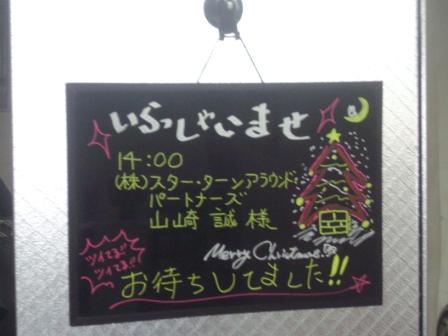 いらっしゃいませ
14:00
(株)スター・ターンアラウンド
パートナーズ
山崎 誠 様
Merry Christmas
ツイてる!!
ツイてる!!
お待ちしてました!!